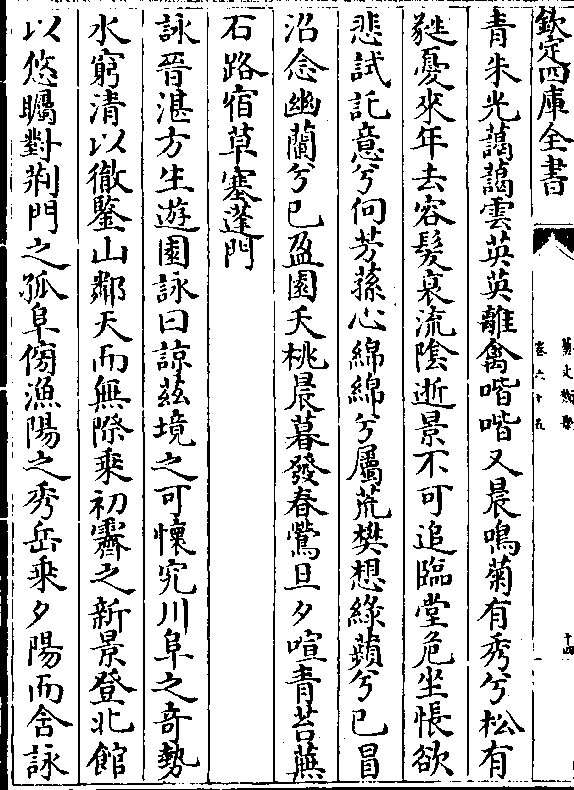 欽定四庫全書
藝文類聚
卷六十五
十四
青朱光藹藹雲英英離禽喈喈又晨鳴菊有秀兮松有
蕤憂來年去容髮衰流陰逝景不可追臨堂危坐悵欲
悲試託意兮向芳蓀心綿綿兮屬荒樊想綠蘋兮已冒
沼念幽蘭兮已盈園夭桃晨暮發春鶯旦夕喧青苔蕪
石路宿草塞蓬門
詠晉湛方生遊園詠曰諒茲境之可懷究川阜之奇勢
水窮清以徹鑒山鄰天而無際乘初霽之新景登北館
以悠矚對荆門之孤阜傍漁陽之秀岳乘夕陽而含詠